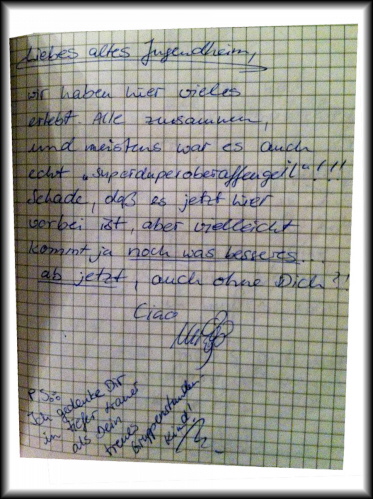 Liebes altes Jugendheim,
wir haben hier vieles
erlebt. Alle zusammen,
und meistens war es auch
echt „superduperoberaffengeil“!!!
Schade, daß es jetzt hier
vorbei ist, aber vielleicht
kommt ja noch was besseres...
ab jetzt, auch ohne Dich?!
Ciao
P.S.:
Ich gedenke Dir
in tiefer Trauer
als Dein
treues
Gruppenstunden-
Kind!